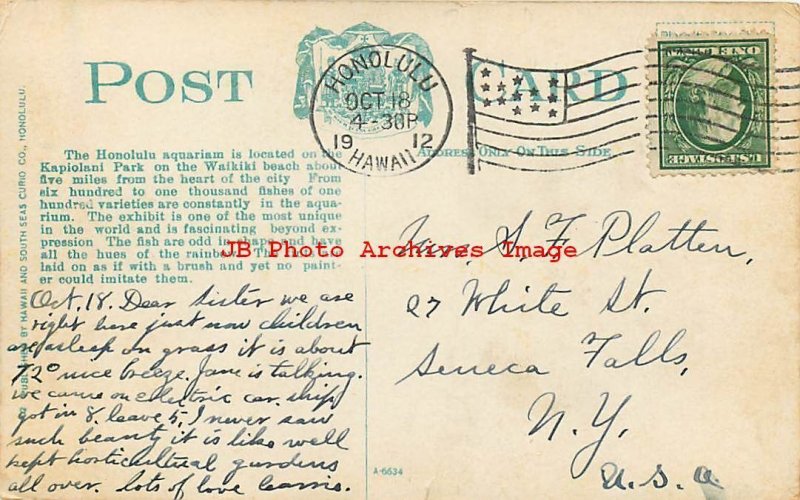 POST CARD
HONOLULU
OCT 18
4-30P
1912
HAWAII
ADDRESS ONLY ON THIS SIDE
U.S. POSTAGE
The Honolulu aquariam is located on the
Kapiolani Park on the Waikiki beach about
five miles from the heart of the city From
six hundred to one thousand fishes of one
hundred varieties are constantly in the aqua-
rium. The exhibit is one of the most unique
in the world and is fascinating beyond ex-
pression The fish are odd in shape and have
all the hues of the rainbow. The
laid on as if with a brush and yet no paint-
er could imitate them.
JB Photo Archives Image
PUBLISHED BY HAWAII AND SOUTH SEAS CURIO CO., HONOLULU.
Oct. 18. Dear Sister we are
right here just now children
are asleep on grass it is about
72° nice breeze, Jane is talking.
we came on electric car. ship
got in 8. leave 5. I never saw
such beauty it is like well
kept horticultural gardens
all over. lots of love Carrie.
A-6634
S. F. Platten,
27 White St.
Seneca Falls,
N.Y.
U.S.A